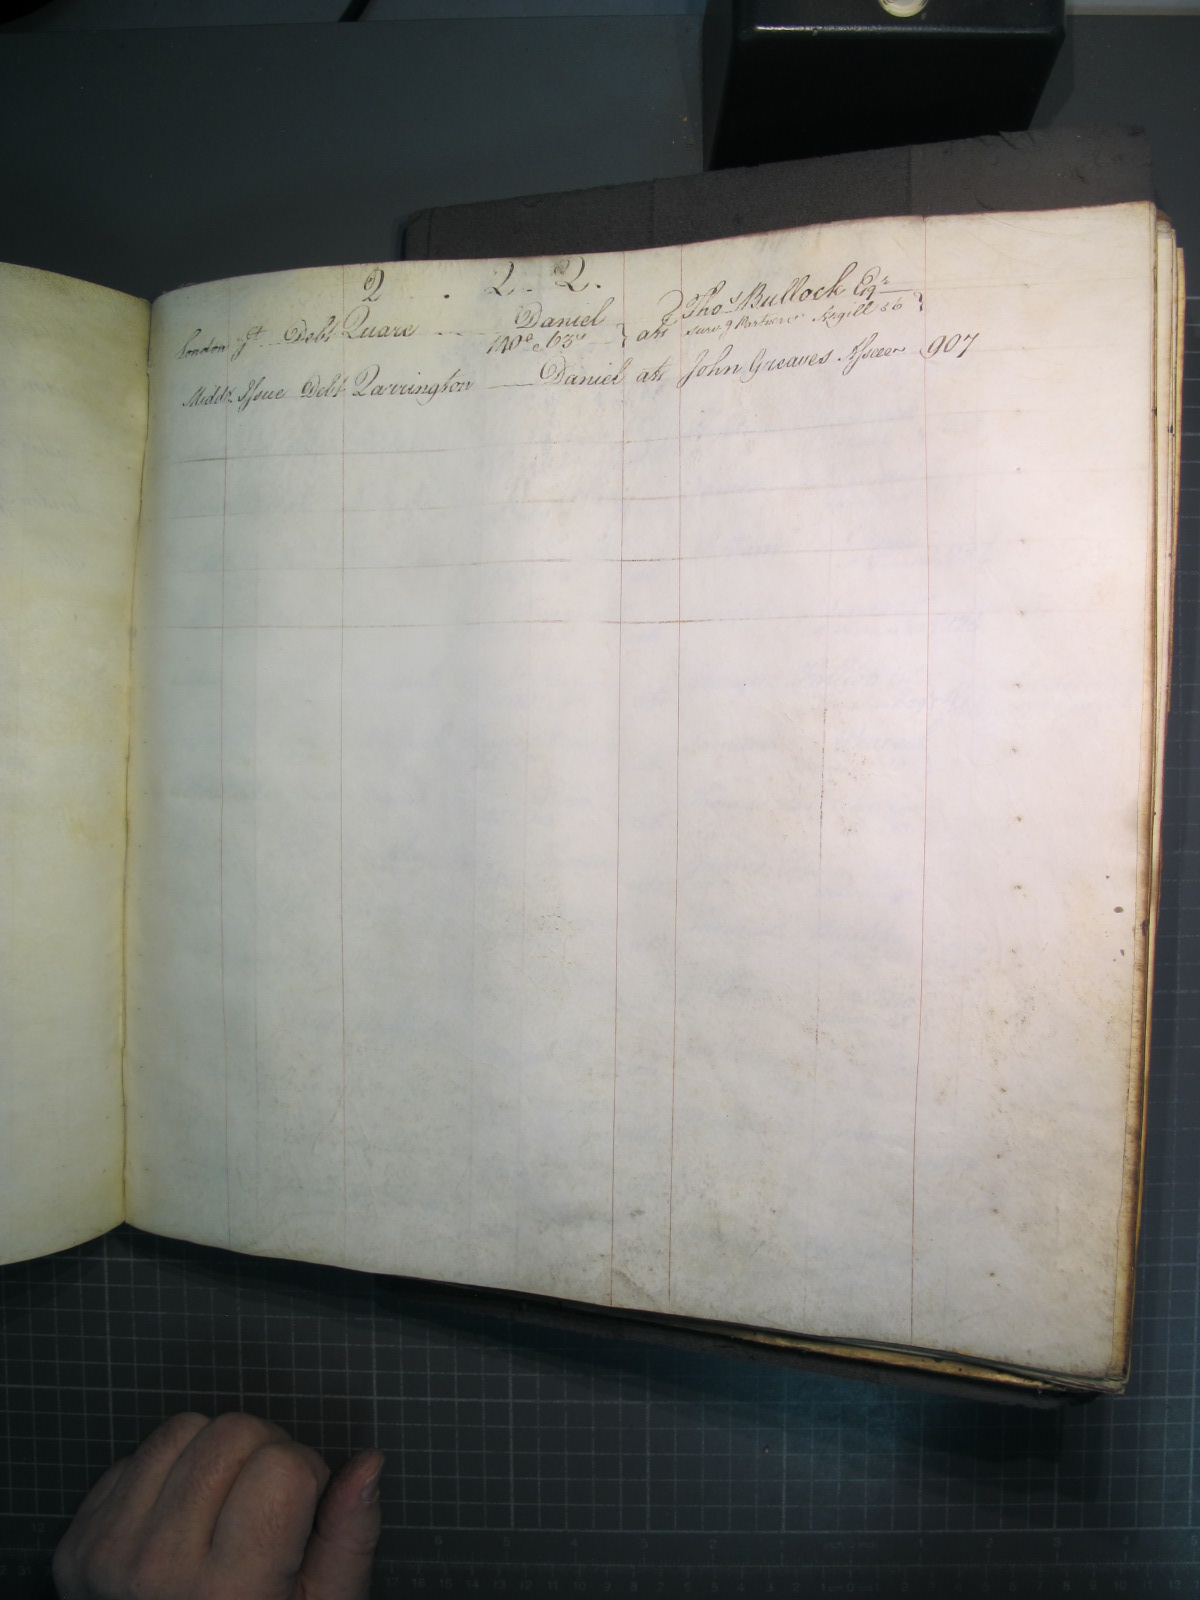 Q . Q. Q.
London Jt. Debt Quare Daniel } ats { Thos. Bullock Esqr.
surv.g Partner Argill 56 }
Middx Issue Debt Qarrington Daniel ats John Greaves Assee 907